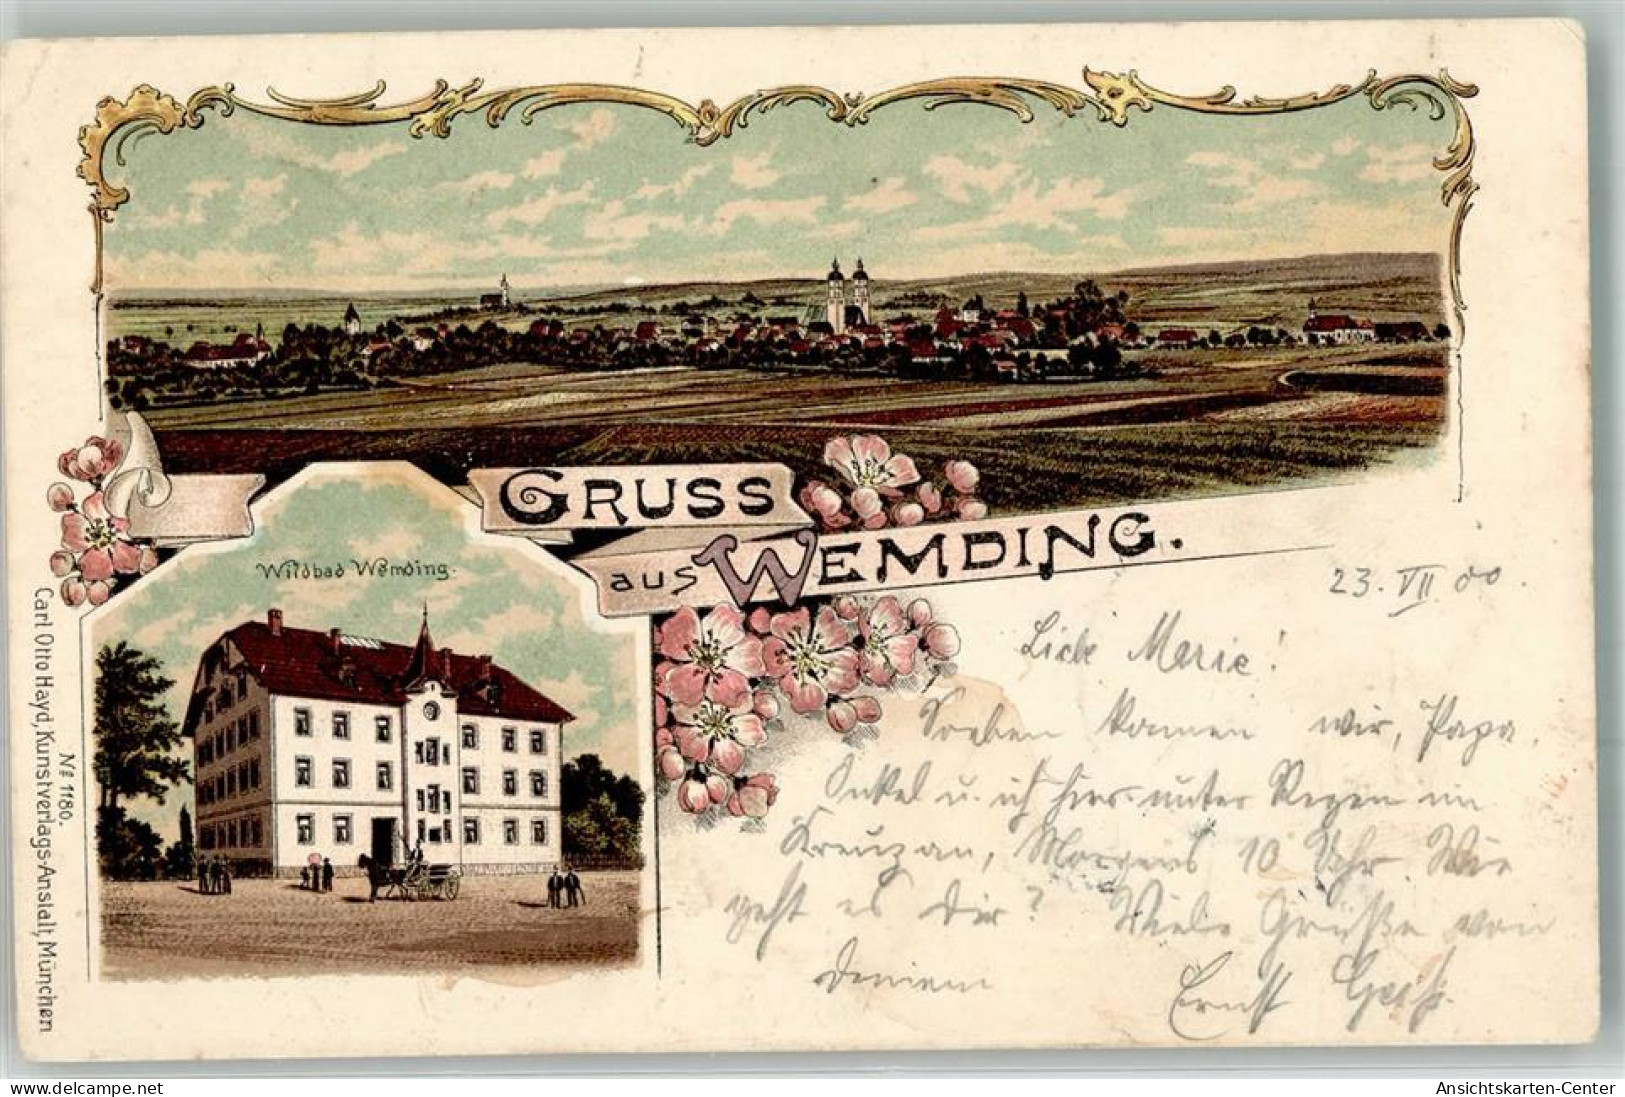 GRUSS
aus WEMDING.
Wildbad Wemding.
23. VII 00.
Liebe Marie!
Soeben kommen wir, Papa,
Onkel u. ich hier unter Regen im
Kreuz an, Morgens 10 Uhr. Wie
geht es Dir? Viele Grüße von
Deinem
Ernst
Carl Otto Hayd, Kunstverlags-Anstalt, München
No 1180.
delcampe.net
Ansichtskarten-Center